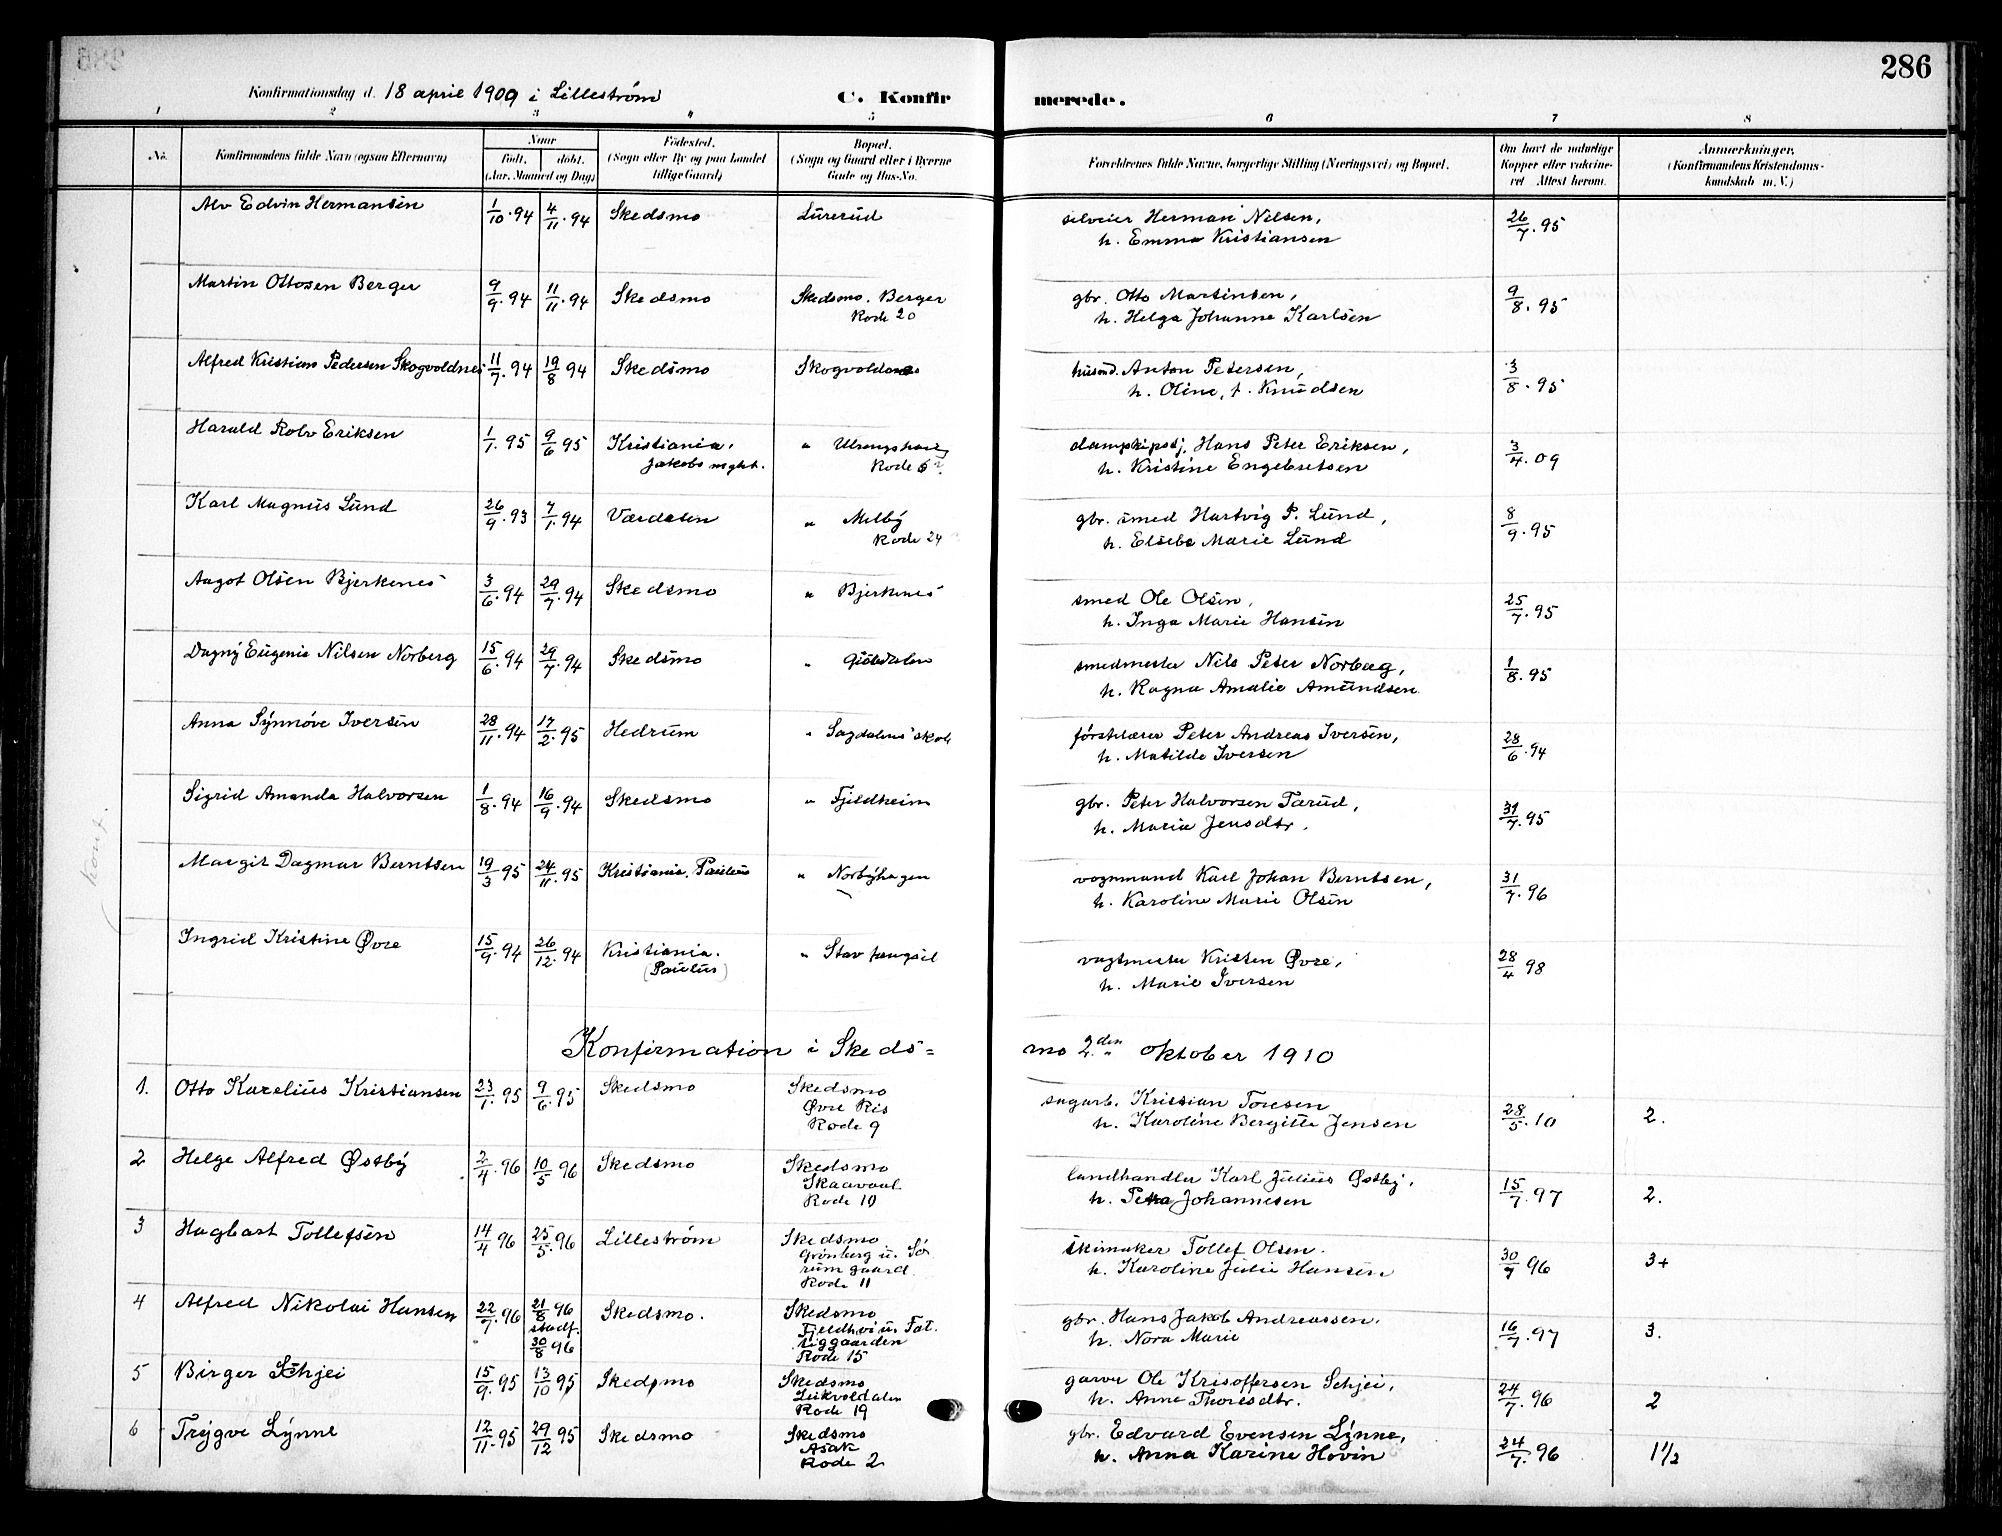 286
Konfirmationsdag d. 18 april 1909 i Lilleström
C. Konfirmerede.
1 2 3 4 5 6 7 8
No.
Konfirmandens fulde Navn (ogsaa Efternavn)
Naar
født. døbt.
(Aar, Maaned og Dag)
Fødested.
(Sogn eller By og paa Landet
tillige Gaard)
Bopæl.
(Sogn og Gaard eller i Byerne
Gade og Hus-No.
Forældrenes fulde Navne, borgerlige Stilling (Næringsvei) og Bopæl.
Om havt de naturlige
Kopper eller vakcine-
ret Attest herom.
Anmærkninger.
(Konfirmandens Kristendoms-
kundskab m.V.)
Alv Edvin Hermansen 1/10.94 4/11.94 Skedsmo Lurerud Herman Nilsen, 26/7.95
h. Emma Kristiansen
Martin Ottosen Berger 9/9.94 11/11.94 Skedsmo Skedsmo. Berger gbr. Otto Martinsen, 9/8.95
Rode 20 h. Helga Johanne Karlsen
Alfred Kristians Pedersen Skogvoldnes 11/7.94 19/8 94 Skedsmo Skogvoldnes husmd. Anton Petersen, 3/8.95
h. Oline, f. Knudsen
Harald Rolv Eriksen 1/1.95 9/6 95 Kristiania, " Hans Peter Eriksen, 3/4.09
Jakobs mght. Rode 6 h. Kristine Engebretsen
Karl Magnus Lund 26/9.93 7/1.94 Værdalen " Melby gbr. smed Hartvig P. Lund, 8/9.95
Rode 24 h. Elsebe Marie Lund
Aagot Olsen Bjerkenes 3/6.94 29/7.94 Skedsmo " Bjerkenes smed Ole Olsen, 25/7.95
h. Inga Marie Hansen
Dagny Eugenie Nilsen Norberg 15/6.94 29/7.94 Skedsmo " smedmester Nils Peter Norberg, 1/8.95
h. Ragna Amalie Amundsen
Anna Synnöve Iversen 28/11.94 17/2.95 Hedrum " Sagdalens skole förstelærer Peter Andreas Iversen, 28/6.94
h. Matilde Iversen
Sigrid Amanda Halvorsen 1/8.94 16/9.94 Skedsmo " Fjeldheim gbr. Peter Halvorsen Tærud, 31/7.95
h. Maria Jensdtr.
Margit Dagmar Berntsen 19/3 95 24/11.95 Kristiania, Paulus " Norbyhagen vognmand Karl Johan Berntsen, 31/7.96
h. Karoline Marie Olsen
Ingrid Kristine Øvre 15/9.94 26/12.94 Kristiania. " Stav fængsel vagtmester Kristen Øvre, 28/4 98
(Paulus) h. Marie Iversen
Konfirmation i Skeds=mo 2den oktober 1910
1. Otto Karelius Kristiansen 23/1.95 9/6.95 Skedsmo Skedsmo sagarb. Kristian Toresen 28/5.10 2.
Øvre Ris h. Karoline Bergitte Jensen
Rode 9
2 Helge Alfred Østby 2/4.96 10/5 96 Skedsmo Skedsmo landhandler Karl Julius Østby, 15/7.97 2.
Skaavoal h. Petra Johannesen
Rode 10
3 Hagbart Tollefsen 14/4 96 25/5.96 Lilleström Skedsmo skimaker Tollef Olsen. 30/7 96 3+
Grönberg u. Sö h. Karoline Julie Hansen
rum gaard
Rode 11
4 Alfred Nikolai Hansen 22/7.96 21/8 96 Skedsmo. Skedsmo gbr. Hans Jakob Andreassen, 16/7.97 3.
stadf. u. Fat. h. Nora Marie
30/8 96 tiggaarden
Rode 15
5 Birger Schjei 15/9.95 13/10 95 Skedsmo Skedsmo garver Ole Kristoffersen Schjei, 24/7.96 2
Leikvoldalen h. Anne Thoresdtr.
Rode 19
6 Trygve Lynne 12/11.95 29/12 95 Skedsmo Skedsmo gbr. Edvard Evensen Lynne, 24/7.96 1 1/2
Asak h. Anna Karine Hovin
Rode 2